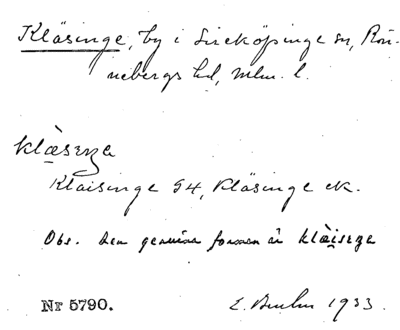 Kläsinge, by i Sireköpinge sn, Rön-
nebergs hd, Mlm. l.
klæ̀seŋe
Klaisinge 54, Kläsinge ek.
Obs. den genuina formen är klàiseŋe
Nr 5790.
1933